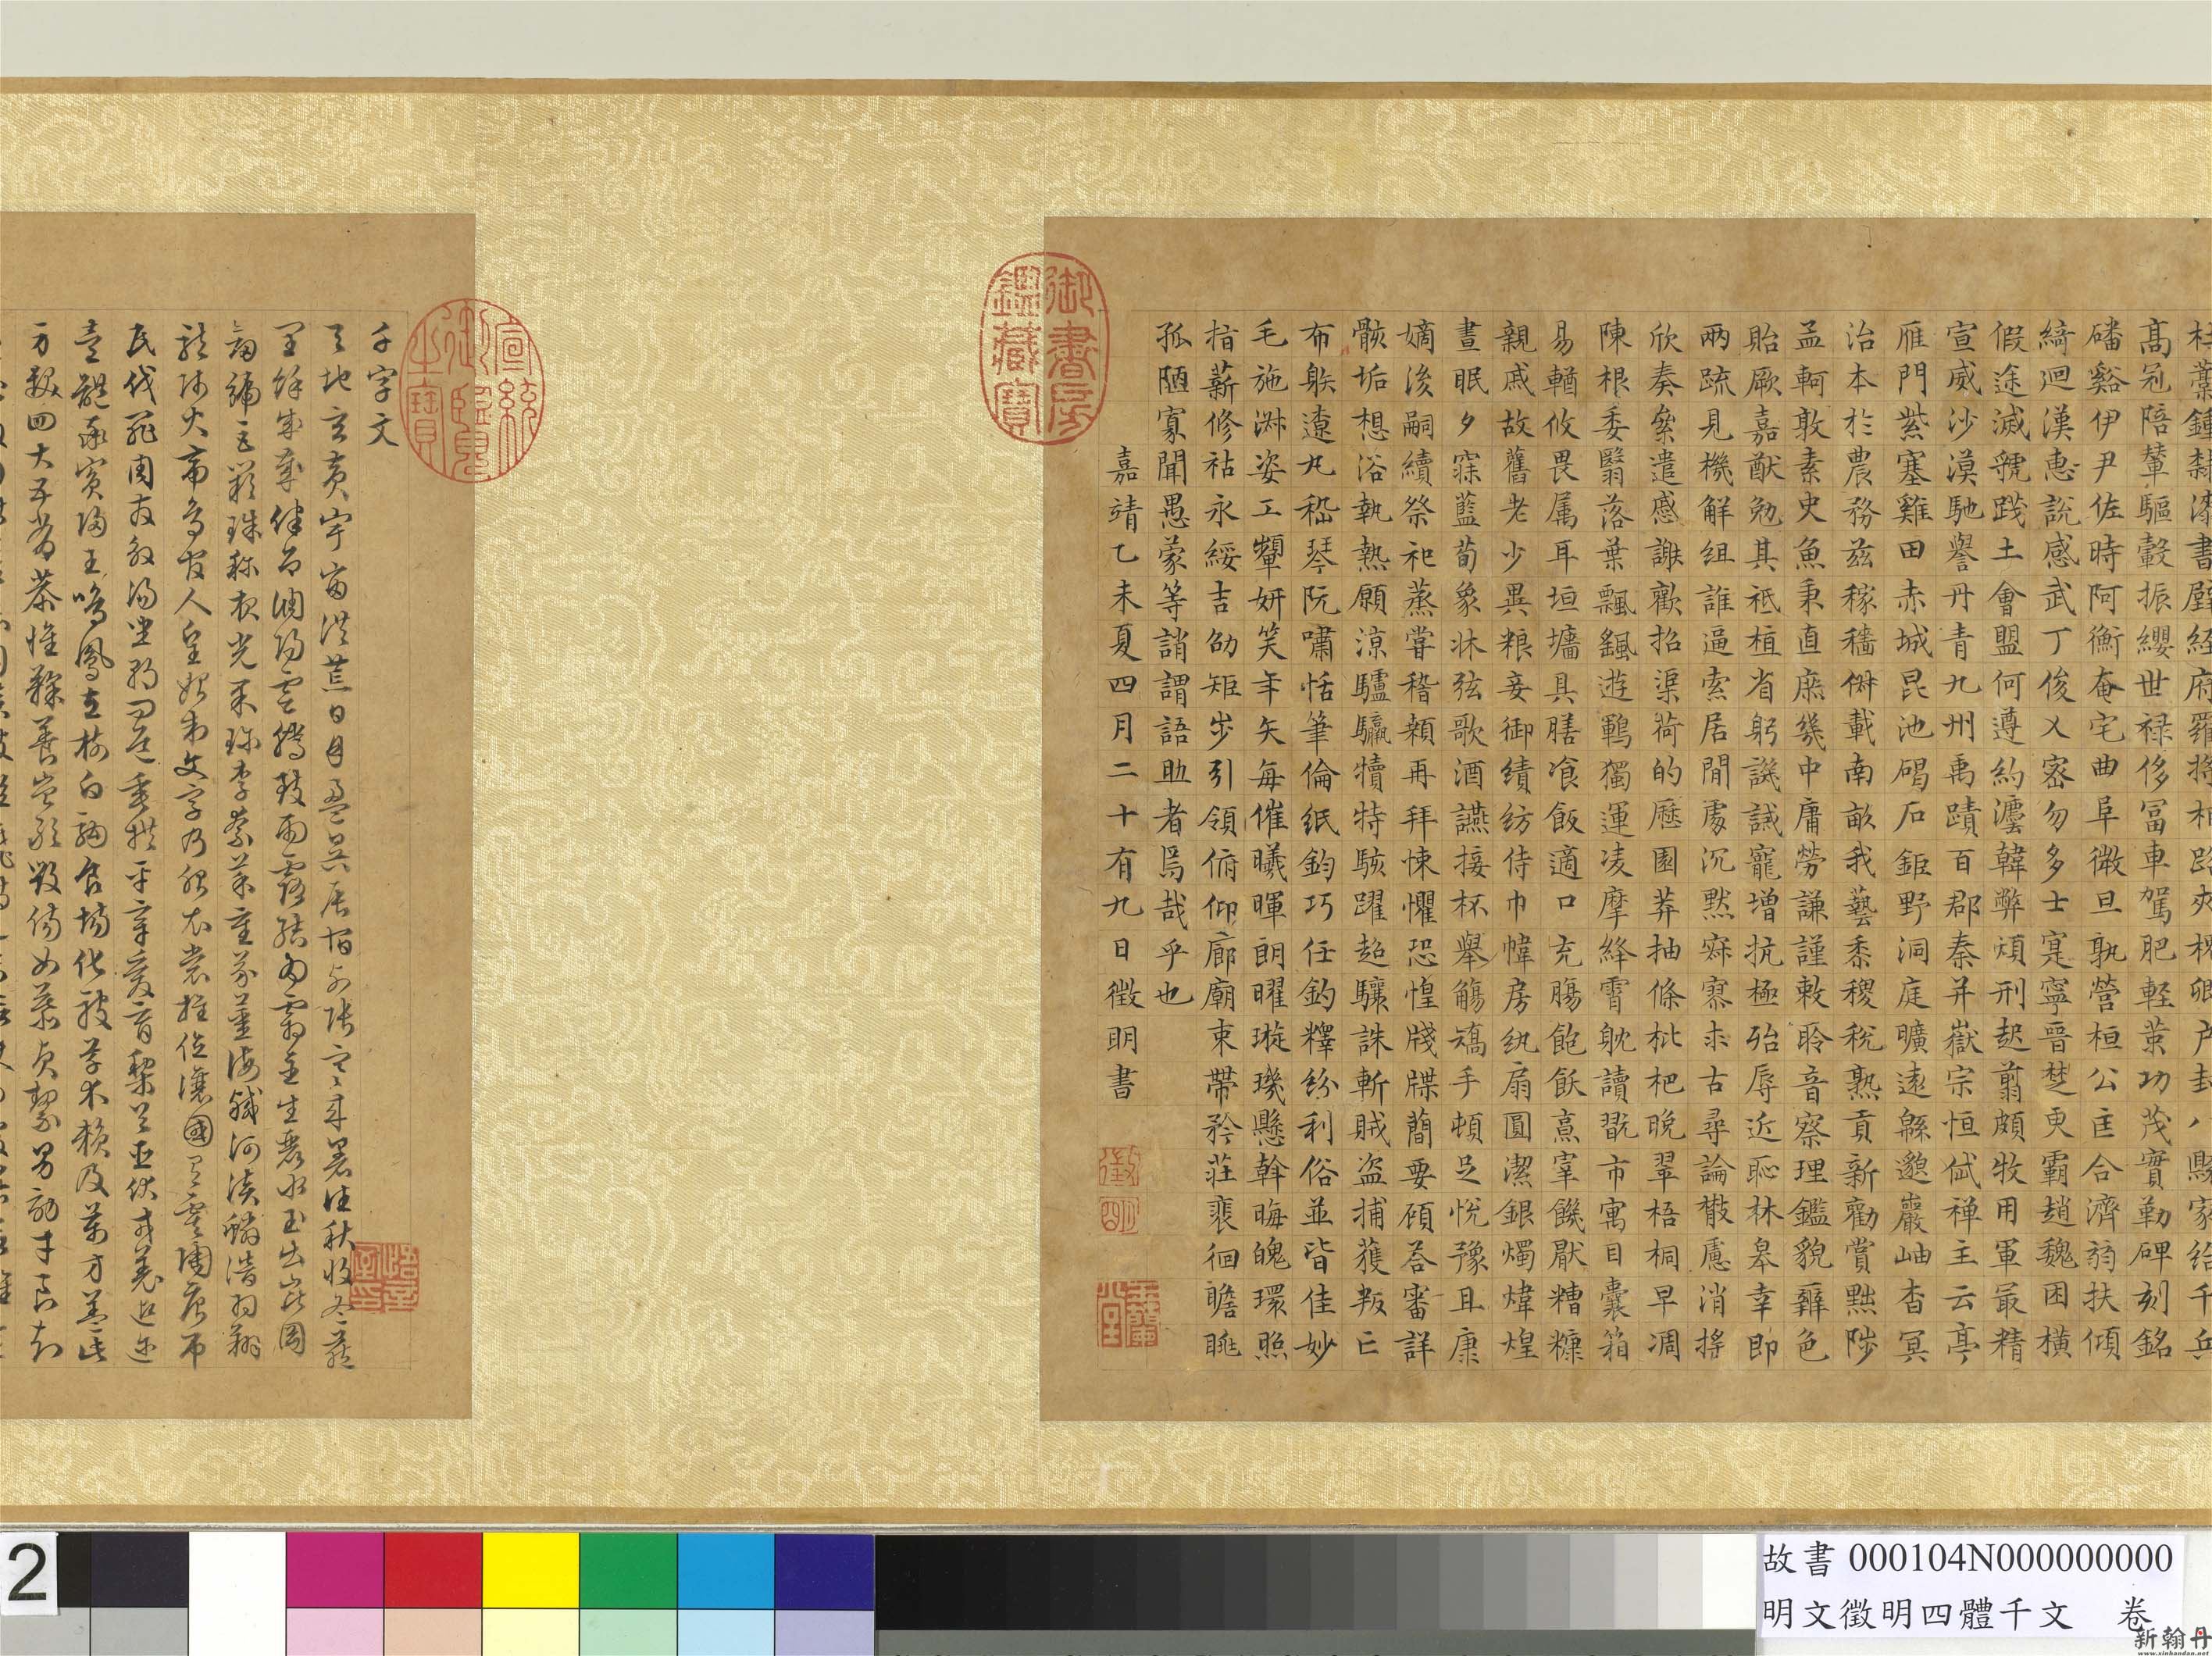 杜藁鍾隸漆書壁經府羅將相路俠槐卿戶封八縣家給千兵
高冠陪輦驅轂振纓世祿侈富車駕肥輕策功茂實勒碑刻銘
磻谿伊尹佐時阿衡奄宅曲阜微旦孰營桓公匡合濟弱扶傾
綺迴漢惠說感武丁俊乂密勿多士寔寧晉楚更霸趙魏困橫
假途滅虢踐土會盟何遵約灋韓弊煩刑起翦頗牧用軍最精
宣威沙漠馳譽丹青九州禹蹟百郡秦并嶽宗恒岱禪主云亭
雁門紫塞雞田赤城昆池碣石鉅野洞庭曠遠緜邈巖岫杳冥
治本於農務茲稼穡俶載南畝我藝黍稷稅熟貢新勸賞黜陟
孟軻敦素史魚秉直庶幾中庸勞謙謹敕聆音察理鑑貌辨色
貽厥嘉猷勉其祗植省躬譏誡寵增抗極殆辱近恥林皋幸即
兩疏見機解組誰逼索居閒處沉默寂寥求古尋論散慮消搖
欣奏累遣慼謝歡招渠荷的歷園莽抽條枇杷晚翠梧桐早凋
陳根委翳落葉飄颻遊鵾獨運凌摩絳霄耽讀翫市寓目囊箱
易輶攸畏属耳垣墻具膳飡飯適口充腸飽飫烹宰饑厭糟糠
親戚故舊老少異粮妾御績紡侍巾帷房紈扇圓潔銀燭煒煌
晝眠夕寐藍筍象牀弦歌酒讌接杯舉觴矯手頓足悅豫且康
嫡後嗣續祭祀蒸嘗稽顙再拜悚懼恐惶牋牒簡要顧答審詳
骸垢想浴執熱願涼驢驘犢特駭躍超驤誅斬賊盜捕獲叛亡
布躲遼丸嵇琴阮嘯恬筆倫紙鈞巧任釣釋紛利俗並皆佳妙
毛施淑姿工顰妍笑年矢每催曦暉朗曜璇璣懸斡晦魄環照
指薪修祜永綏吉劭矩步引領俯仰廊廟束帶矜莊裴徊瞻眺
孤陋寡聞愚蒙等誚謂語助者焉哉乎也
嘉靖乙未夏四月二十有九日徵明書
徵明
玉蘭堂
御書房鑑藏寶
宣統御覽之寶
千字文
天地玄黃宇宙洪荒日月盈昃辰宿列張寒來暑往秋收冬藏
閏餘成歲律呂調陽雲騰致雨露結為霜金生麗水玉出崑岡
劍號巨闕珠稱夜光果珍李柰菜重芥薑海鹹河淡鱗潛羽翔
龍師火帝鳥官人皇始制文字乃服衣裳推位讓國有虞陶唐弔
民伐罪周發殷湯坐朝問道垂拱平章愛育黎首臣伏戎羌遐邇
壹體率賓歸王鳴鳳在樹白駒食場化被草木賴及萬方蓋此
身髮四大五常恭惟鞠養豈敢毀傷女慕貞絜男效才良知
2
故書 000104N000000000
明文徵明四體千文 卷
新翰丹
www.xinhandan.net